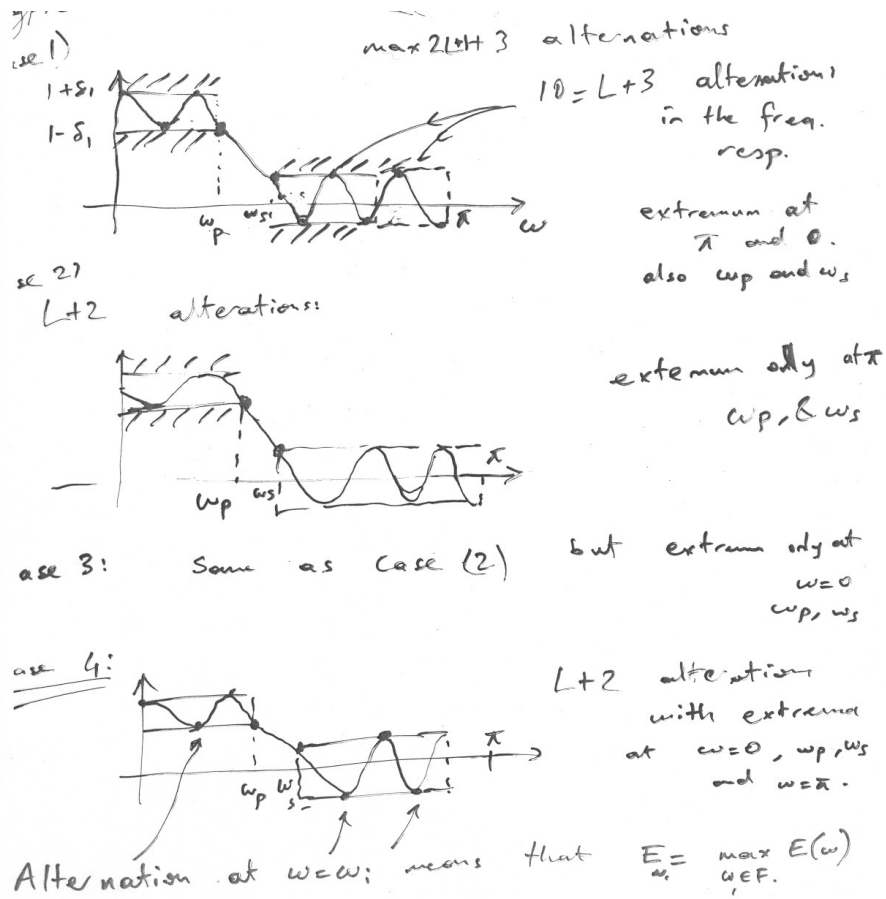 se 1)
max 2L+1+3 alternations
1+δ₁
1-δ₁
10=L+3 alternations
in the freq.
resp.
ωp
ωs
π
ω
extremum at
π and 0.
also ωp and ωs
se 2)
L+2 alterations:
extemum only at π
ωp, & ωs
π
ωp
ωs
ase 3: Same as Case (2) but extrem only at
ω=0
ωp, ωs
ase 4:
L+2 alteration
with extrema
at ω=0, ωp, ωs
and ω=π.
π
ωp
ωs
Alternation at ω=ωi means that Eωi = max E(ω)
ω∈F.